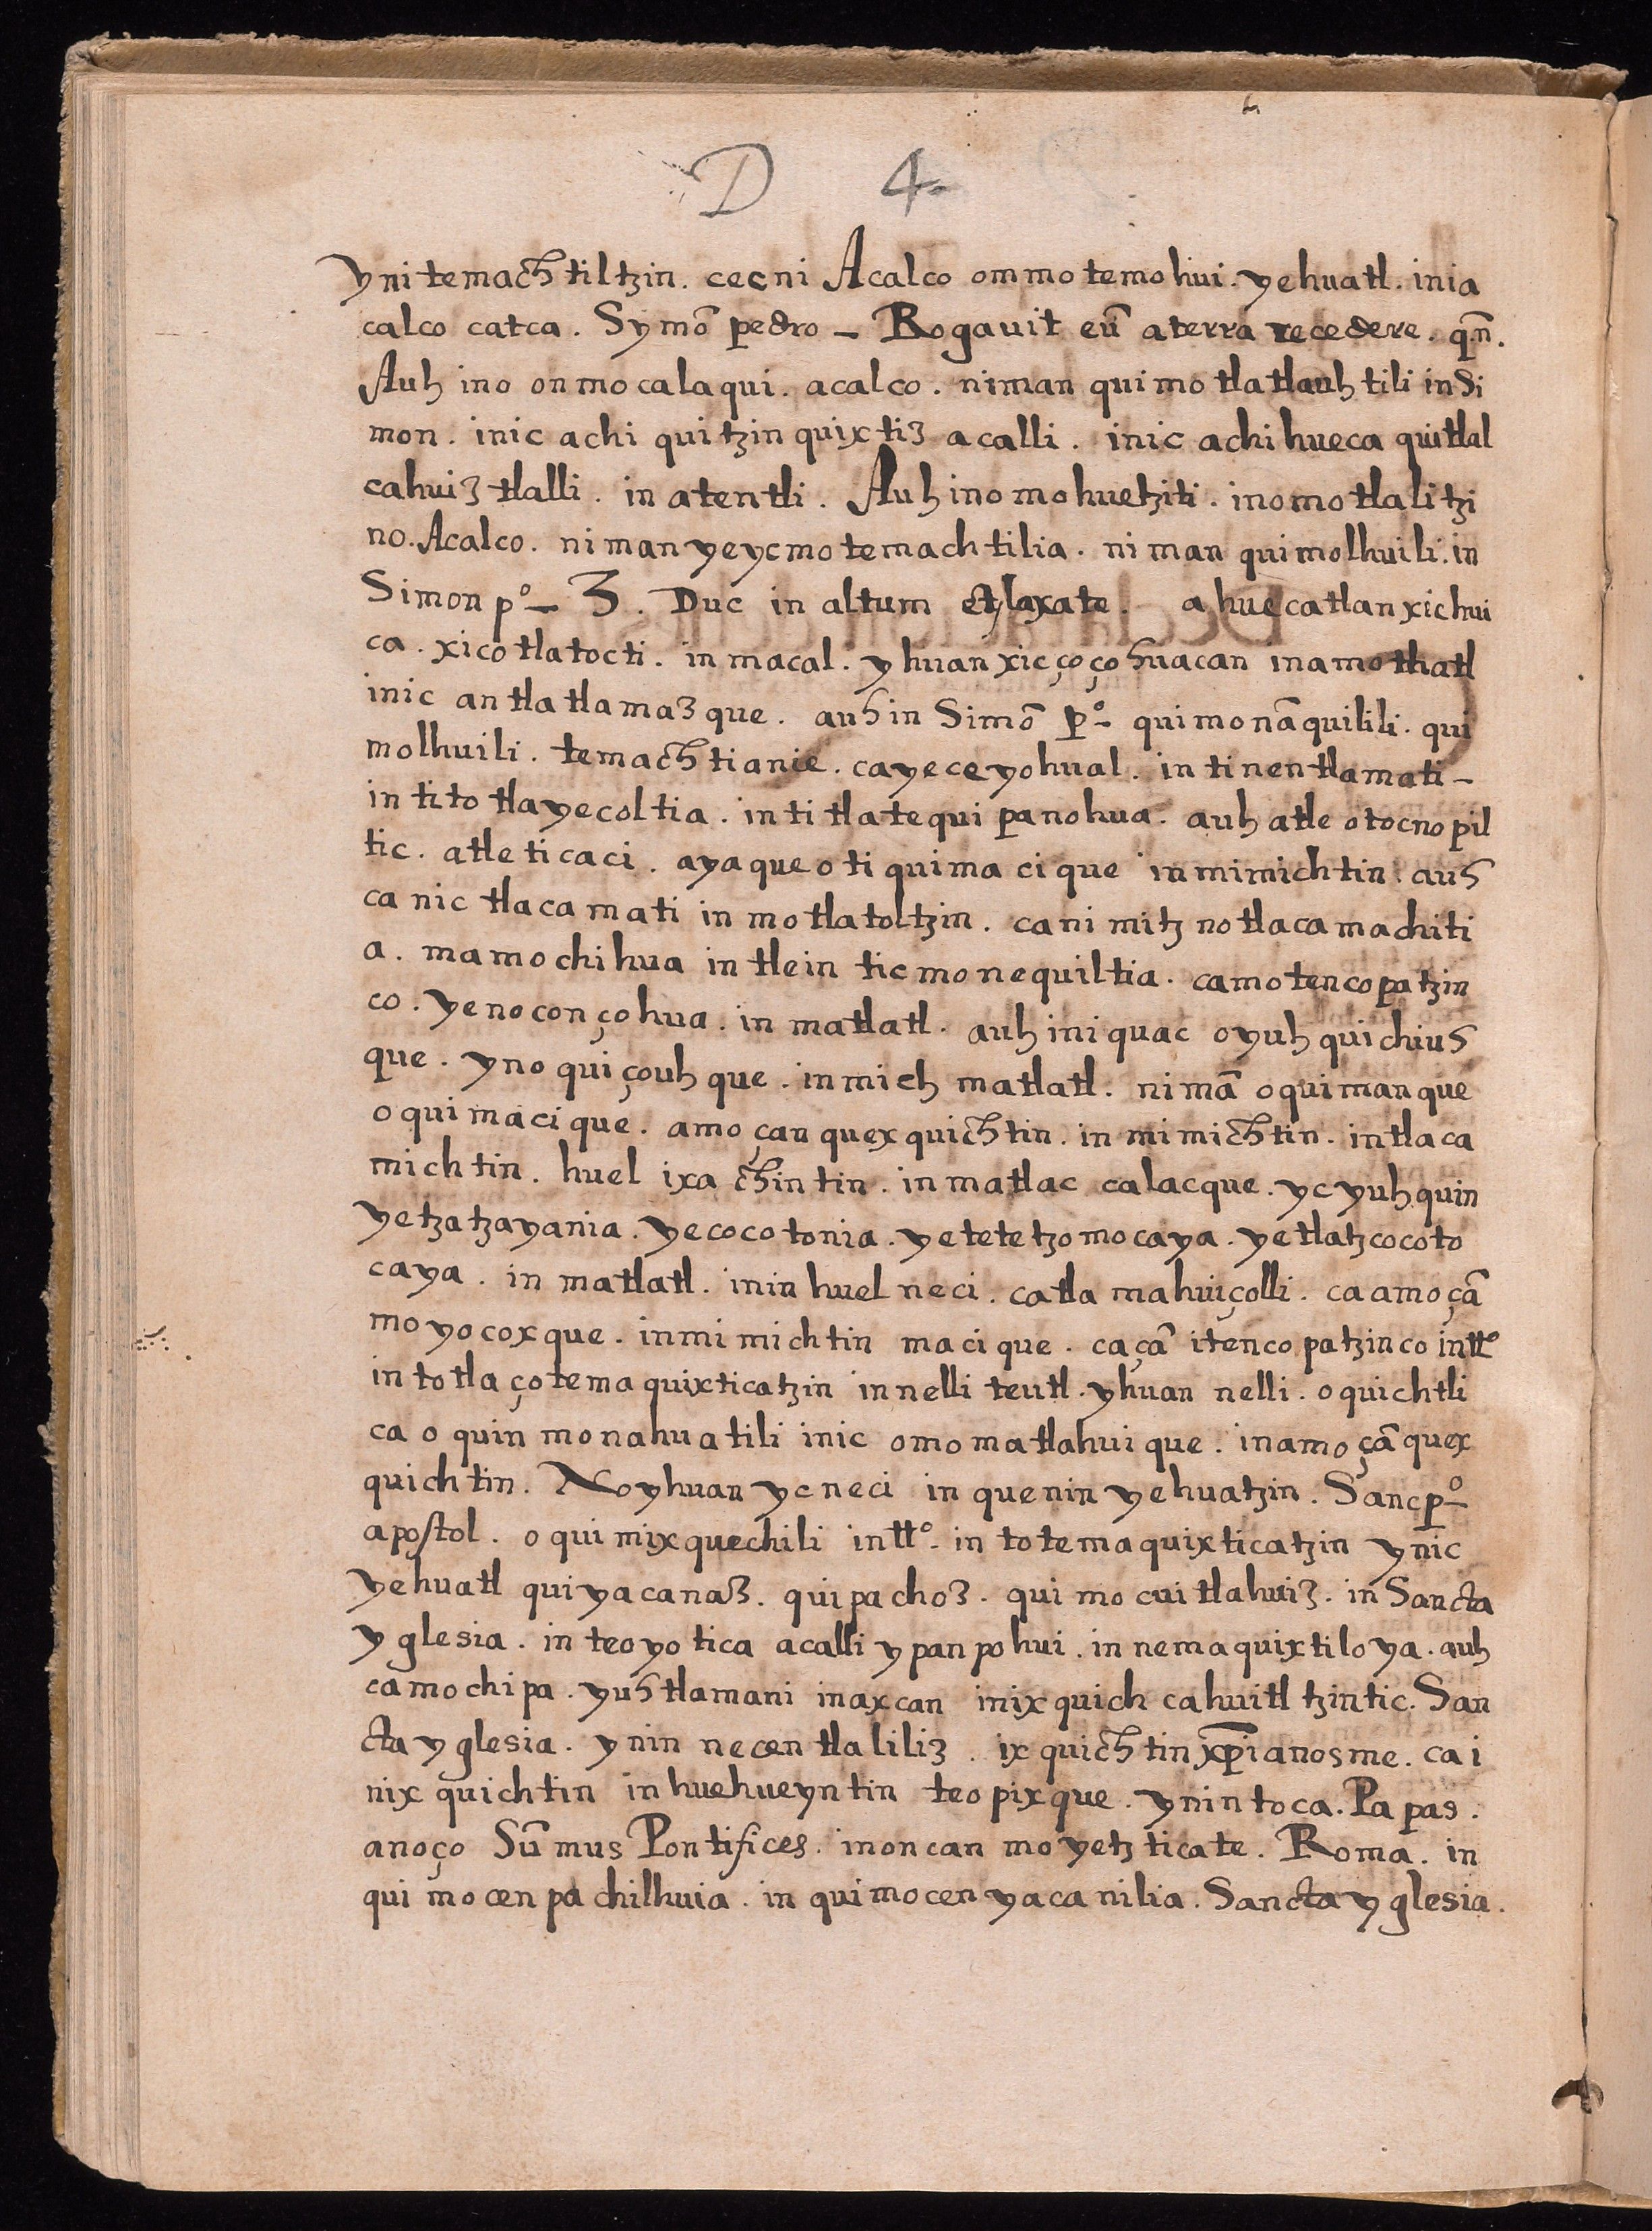 D 4.
yni temachtiltzin. cecni Acalco ommotemohui. yehuatl. inia
calco catca. Symō pedro - Rogauit eū aterra recedere. q.n̄.
Auh ino onmocalaqui. acalco. niman quimotlatlauhtili insi
mon. inic achi quitzinquixtiz acalli. inic achi hueca quitlal
cahuiz tlalli. in atentli. Auh ino mohuetziti. inomotlalitzi
no. Acalco. niman yeycmotemachtilia. niman quimolhuili. in
Simon p.º - 3. Duc in altum et laxate. ahuecatlan xichui
ca. xicotlatocti. in macal. yhuan xicçoçohuacan inamotlatl
inic antlatlamazque. auh in Simō p.º - quimonāquilili. qui
molhuili. temachtianie. cayeceyohual. in tinentlamati -
in titotlayecoltia. in titlatequipanohua. auh atle otocnopil
tic. atleticaci. ayaque otiquimacique in mimichtin. auh
ca nictlacamati in motlatoltzin. ca nimitznotlacamachiti
a. mamochihua in tlein ticmonequiltia. camotencopatzin
co. yenoconçohua. in matlatl. auh iniquac oyuh quichiuh
que. yno quiçouhque. in mich matlatl. nimā oquimanque
oquimacique. amo çan quexquichtin. in mimichtin. in tlaca
michtin. huel ixachintin. in matlac calacque. yc yuhquin
yetzatzayania. yecocotonia. yetetetzomocaya. yetlatzcocoto
caya. in matlatl. inin huel neci. catlamahuiçolli. ca amo çā
moyocoxque. in mimichtin macique. ca çā itencopatzinco in tt.º
in totlaçotemaquixticatzin in nelli teutl. yhuan nelli. oquichtli
ca oquinmonahuatili inic omomatlahuique. in amo çā quex
quichtin. No yhuan yc neci in quenin yehuatzin. Sanc p.º -
apostol. oquimixquechili in tt.º. in totemaquixticatzin ynic
yehuatl quiyacanaz. quipachoz. quimocuitlahuiz. in Sancta
yglesia. in teoyotica acalli ypan pohui. in nemaquixtiloya. auh
ca mochipa. yuh tlamani inaxcan inixquich cahuitl tzintic. San
cta yglesia. ynin necentlaliliz. ixquichtin xp̄ianosme. ca i
nixquichtin in huehueyntin teopixque. ynintoca. Papas.
anoço Sūmus Pontifices. inoncan moyetzticate. Roma. in
quimocenpachilhuia. in quimocenyacanilia. Sancta yglesia.